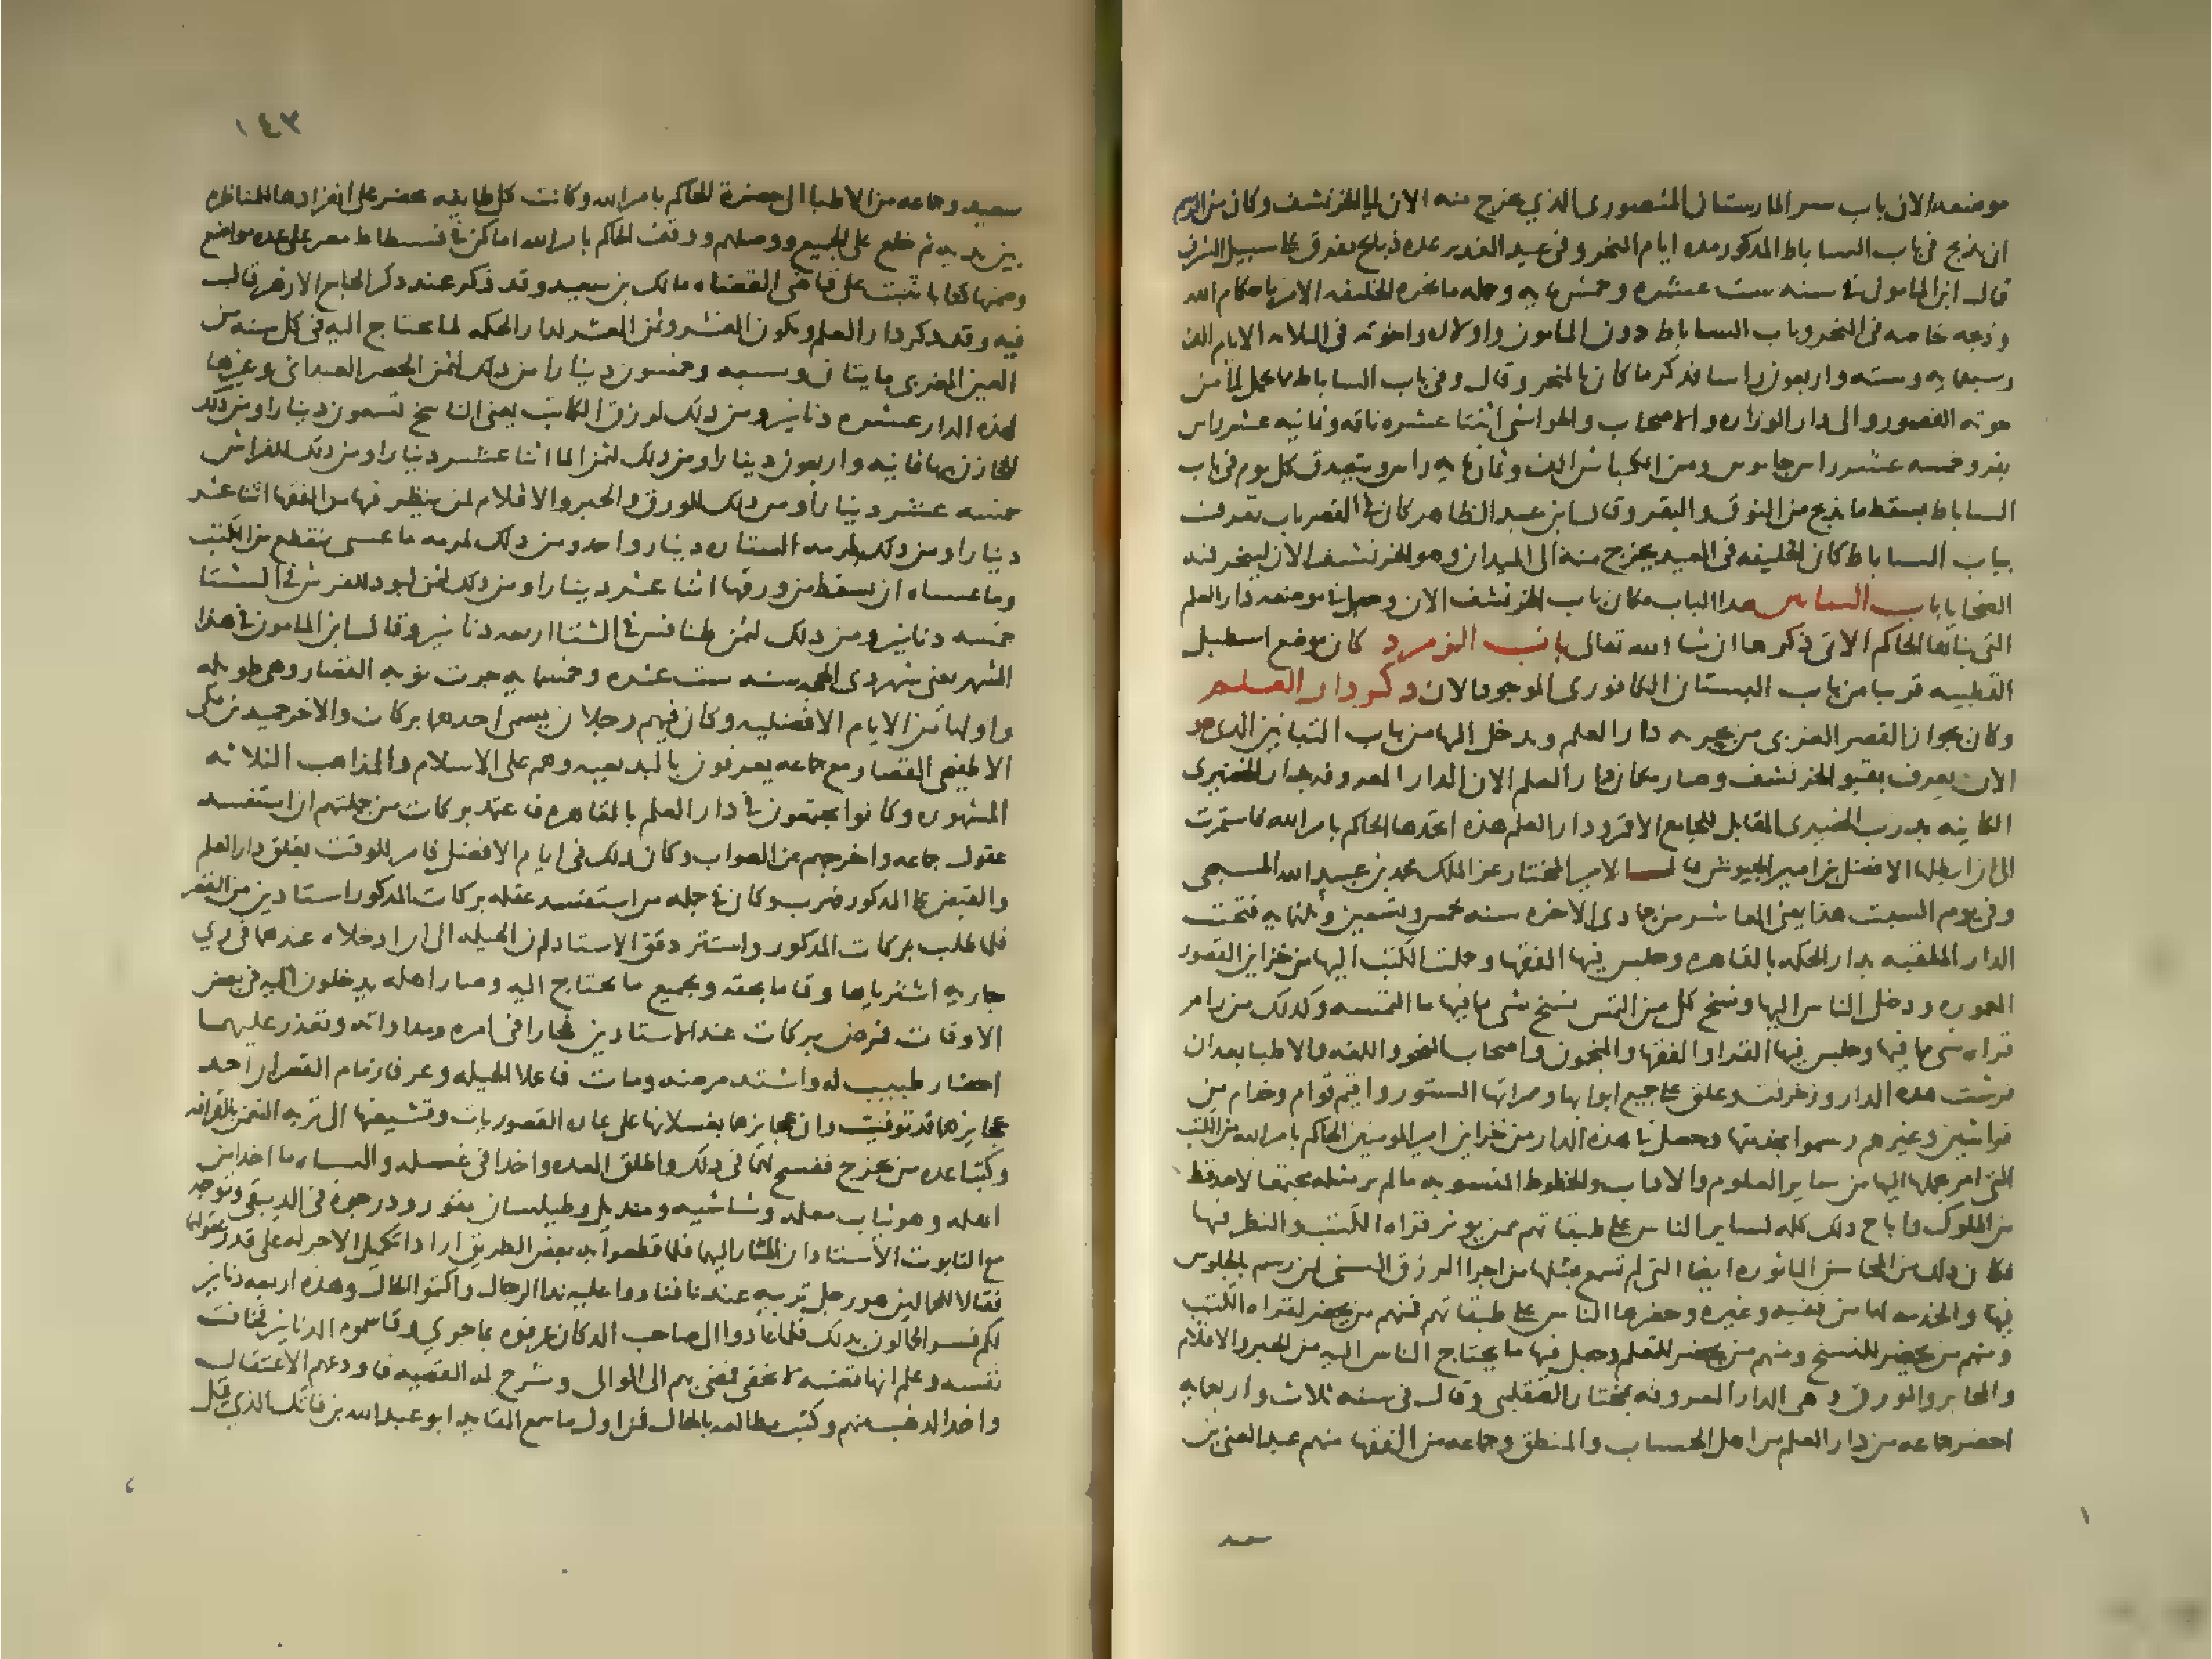 موضعه الان باب سر المارستان المنصورى الذي يخرج منه الان الى الخرنشف وكان من الرسم
ان يذبح فى باب الساباط المذكور مده ايام النحر وفى عيد الغدير عده ذبايح تفرق على سبيل الشرف
قال ابن المامون فى سنه ست عشره وخمس مايه وجمله ما نحره الخليفه الامر باحكام الله
وذبحه خاصه فى المنحر وباب الساباط دون المامون واولاده واخوته فى الثلاثه الايام الف
وسبعمايه وسته واربعون راسا فذكر ما كان بالمنحر وقال وفى باب الساباط مما يحمل لمن
حوته القصور والى دار الوزاره والاصحاب والحواشى اثنتا عشره ناقه وثمانيه عشر راس
بقر وخمسه عشر راس جاموس ومن الكباش الف وثمان مايه راس ويتصدق كل يوم فى باب
الساباط بسقط ما يذبح من النوق والبقر وقال ابن عبد الظاهر كان فى القصر باب يعرف
بباب الساباط كان الخليفه فى العيد يخرج منه الى الميدان وهو الخرنشف الان لينحر فيه
الضحايا باب التبانين هذا الباب مكان باب الخرنشف الان وجعل فى موضعه دار العلم
التى بناها الحاكم الاتى ذكرها ان شا الله تعالى باب الزمرد كان موضع اسطبل
القطبيه قريبا من باب البستان الكافورى الموجود الان ذكر دار العلم
وكان بجوار القصر الغربى من بحريه دار العلم ويدخل اليها من باب التبانين الذى هو
الان يعرف بقبو الخرنشف وصار مكان دار العلم الان الدار المعروفه بدار الخضيرى
الكاينه بدرب الخضيرى المقابل للجامع الاقمر ودار العلم هذه اتخذها الحاكم بامر الله فاستمرت
الى ان ابطلها الافضل بن امير الجيوش قال الامير المختار عز الملك محمد بن عبيد الله المسبحى
وفى يوم السبت هذا يعنى العاشر من جمادى الاخره سنه خمس وتسعين وثلثمايه فتحت
الدار الملقبه بدار الحكمه بالقاهره وجلس فيها الفقها وحملت الكتب اليها من خزاين القصور
المعموره ودخل الناس اليها ونسخ كل من التمس نسخ شى مما فيها ما التمسه وكذلك من رام
قراه شى مما فيها وجلس فيها القرا والفقها والمنجمون واصحاب النحو واللغه والاطبا بعد ان
فرشت هذه الدار وزخرفت وعلق على جميع ابوابها وممراتها الستور واقيم قوام وخدام من
فراشين وغيرهم رسموا بخدمتها وحصل فى هذه الدار من خزاين امير المومنين الحاكم بامر الله من الكتب
التى امر بحملها اليها من ساير العلوم والاداب والخطوط المنسوبه ما لم ير مثله مجتمعا لاحد قط
من الملوك واباح ذلك كله لساير الناس على طبقاتهم ممن يوثر قراه الكتب والنظر فيها
فكان ذلك من المحاسن الماثوره ايضا التى لم تسمع بمثلها من اجرا الرزق السنى لمن رسم بالجلوس
فيها والخدمه لها من فقيه وغيره وحضرها الناس على طبقاتهم فمنهم من يحضر لقراه الكتب
ومنهم من يحضر للنسخ ومنهم من يحضر للتعلم وجعل فيها ما يحتاج الناس اليه من الحبر والاقلام
والمحابر والورق وهى الدار المعروفه بمختار الصقلبى وقال فى سنه ثلاث واربعمايه
احضر جماعه من دار العلم من اهل الحساب والمنطق وجماعه من الفقها منهم عبد الغنى بن
سعيد
١٤٣
سعيد وجماعه من الاطبا الى حضرة الحاكم بامر الله وكانت كل طايفه تحضر على انفرادها للمناظره
بين يديه ثم خلع على الجميع ووصلهم ووقف الحاكم بامر الله اماكن فى فسطاط مصر على عده مواضع
وضمنها كتابا ثبت على قاضى القضاه مالك بن سعيد وقد ذكر عند ذكر الجامع الازهر قال
فيه وقد ذكر دار العلم ويكون العشر وثمن العشر لدار الحكمه لما يحتاج اليه فى كل سنه من
العين المغربى مايتان وسبعه وخمسون دينارا من ذلك لثمن الحصر العبدانى وغيرها
لهذه الدار عشره دنانير ومن ذلك لورق الكاتب يعنى الناسخ تسعون دينارا ومن ذلك
للخازن بها ثمانيه واربعون دينارا ومن ذلك لثمن الما اثنا عشر دينارا ومن ذلك للفراش
خمسه عشر دينارا ومن ذلك للورق والحبر والاقلام لمن ينظر فيها من الفقها اثنا عشر
دينارا ومن ذلك لمرمه الستاره دينار واحد ومن ذلك لمرمه ما عسى يتقطع من الكتب
وما عساه ان يسقط من ورقها اثنا عشر دينارا ومن ذلك لثمن لبود للفرش فى الشتا
خمسه دنانير ومن ذلك لثمن طنافس فى الشتا اربعه دنانير وقال ابن المامون فى هذا
الشهر يعنى شهر ذى الحجه سنه ست عشره وخمسمايه جرت نوبه القصار وهى طويله
واولها من الايام الافضليه وكان فيهم رجلان يسمى احدهما بركات والاخر حميد بن مكى
الاطفيحى القصار مع جماعه يعرفون بالبديعيه وهم على الاسلام والمذاهب الثلاثه
المشهوره وكانوا يجتمعون فى دار العلم بالقاهره فاعتمد بركات من جملتهم ان استفسد
عقول جماعه واخرجهم عن الصواب وكان ذلك فى ايام الافضل فامر للوقت بغلق دار العلم
والقبض على المذكور فهرب وكان فى جمله من استفسد عقله بركات المذكور استادين من القصر
فلما طلب بركات المذكور واستتر دقق الاستادان الحيله الى ان ادخلاه عندهما فى زي
جاريه اشترياها وقاما بحقه وبجميع ما يحتاج اليه وصار اهله يدخلون اليه فى بعض
الاوقات فمرض بركات عند الاستادين فحارا فى امره ومداواته وتعذر عليهما
احضار طبيب له واشتد مرضه ومات فاعملا الحيله وعرفا زمام القصر ان احد
عجايزهما قد توفيت وان عجايزهما يغسلانها على عاده القصوريات وتشيعها الى تربه النعمن بالقرافه
وكتبا عده من يخرج ففسح لهما فى ذلك واطلق العده واخذا فى غسله والبساه ما اخذا من
اهله وهو ثياب معلمه وشاشيه ومنديل وطيلسان مقور ودرجوه فى الدبيقى وتوجه
مع التابوت الاستادان المشار اليهما فلما قطعوا به بعض الطريق ارادا تكميل الاجر له على قدر عقولهما
فقالا للحمالين هو رجل تربيه عندنا فنادوا عليه ندا الرجال واكتموا الحال وهذه اربعه دنانير
لكم فسر الحمالون بذلك فلما عادوا الى صاحب الدكان عرفوه بما جرى وقاسموه الدنانير فخافت
نفسه وعلم انها قضيه لا تخفى فمضى بهم الى الوالى وشرح له القضيه فاودعهم الاعتقال
واخذ الذهب منهم وكتب مطالعه بالحال فمن اول ما سمع القايد ابو عبد الله بن فاتك الذي قيل